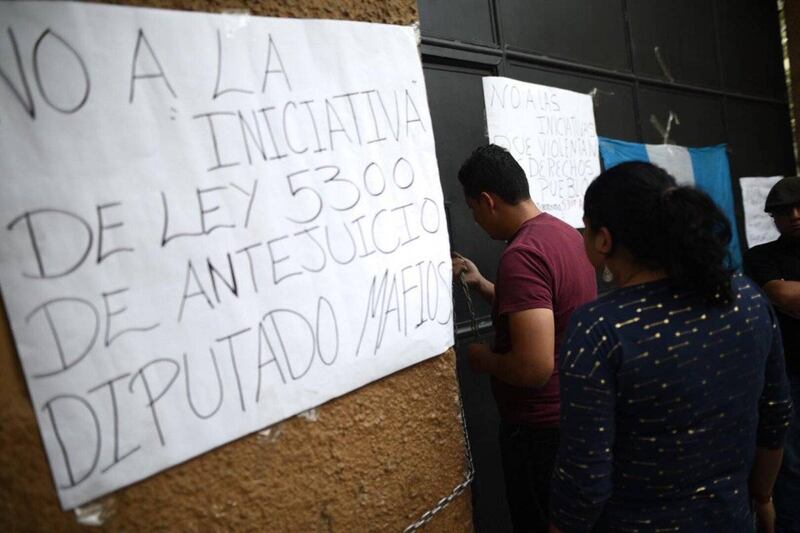 NO A LA
"INICIATIVA"
DE LEY 5300
DE ANTEJUICIO
DIPUTADO MAFIOS
NO A LAS
INICIATIVAS
QUE VIOLENTAN
DERECHOS
PUEBLO